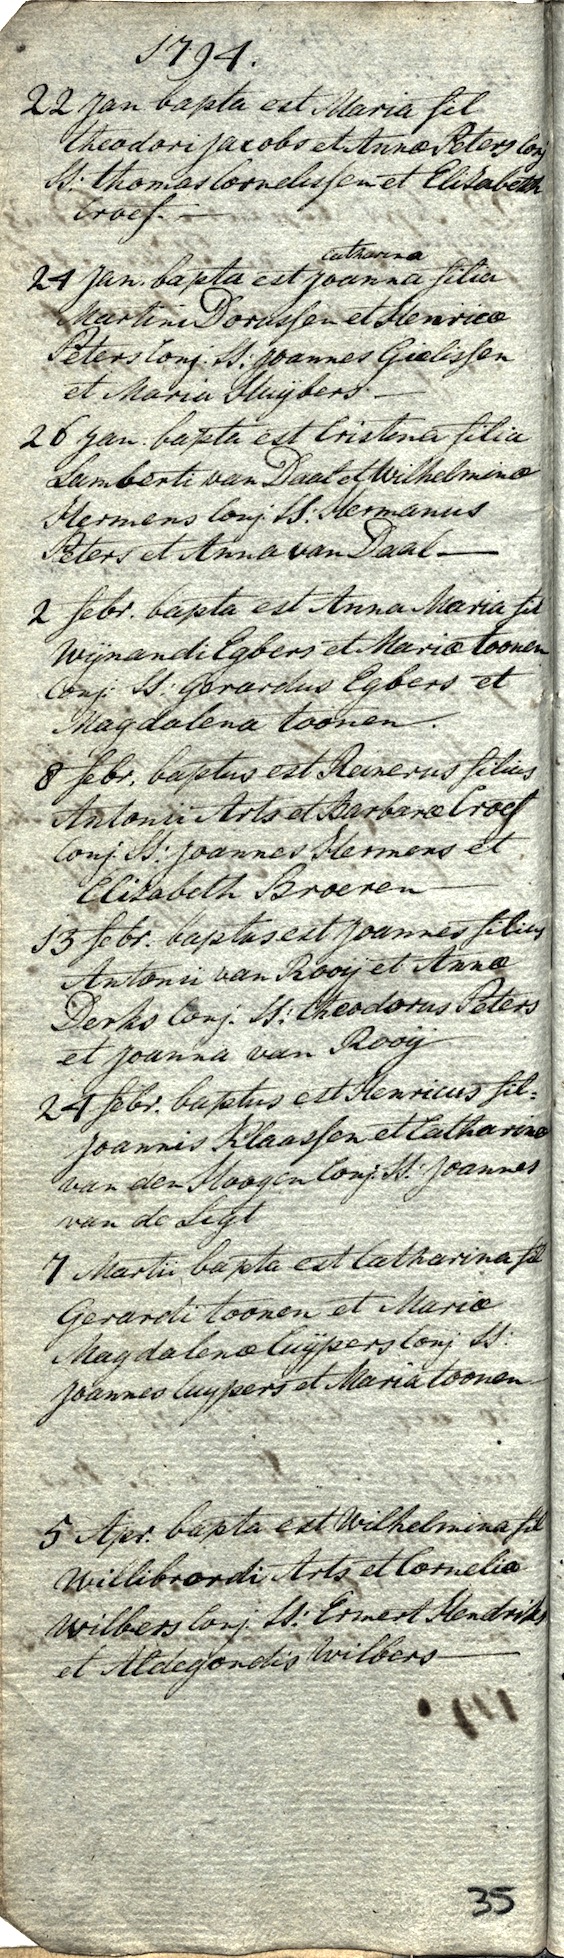 1794.
22 Jan bapta est Maria fil
theodori jacobs et Annæ Peters conj
SS: thomas Cornelissen et Elisabeth
Croef. —
catharina
24 Jan. bapta est joanna filia
Martini Dorussen et Henricæ
Peters Conj. SS: joannes Gielissen
et Maria Huijbers —
26 jan. bapta est Cristina filia
Lamberti van Daal et Wilhelminæ
Hermens Conj. SS: Hermanus
Peters et Anna van Daal —
2 febr. bapta est Anna Maria fil
Wijnandi Egbers et Mariæ toonen
Conj. SS. Gerardus Egbers et
Magdalena toonen.
8 febr. baptus est Reinerus filius
Antonii Arts et Barbaræ Croef
Conj. SS: joannes Hermens et
Elisabeth Broeren —
13 febr. baptus est joannes filius
Antonii van Rooij et Annæ
Derks Conj. SS: theodorus Peters
et joanna van Rooij
24 febr. baptus est Henricus fil=
joannis Klaassen et Catharinæ
van den Hoogen Conj. SS: joannes
van de Ligt
7 Martii bapta est Catharina fil
Gerardi toonen et Mariæ
Magdalenæ Cuijpers Conj SS:
joannes Cuypers et Maria toonen
5 Apr. bapta est Wilhelmina fil
Willibrordi Arts et Corneliæ
Wilbers Conj. SS: Ermert Hendriks
et Aldegondis Wilbers —
35